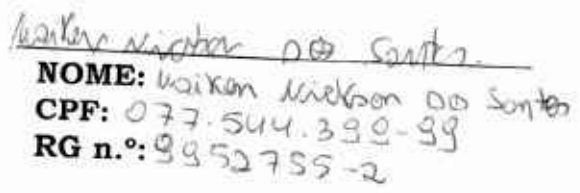 Maiken Nickson DO Santos
NOME: Maikon Nickson DO Santos
CPF: 077.544.399-99
RG n.º: 9952755-2